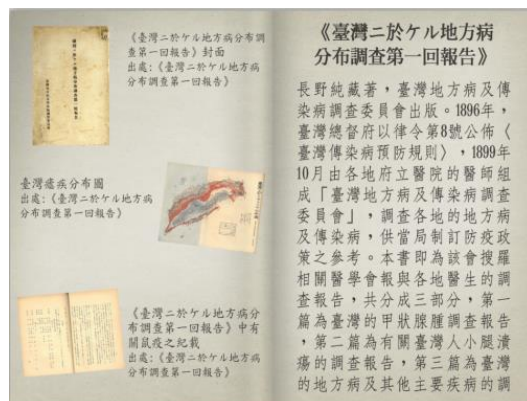 《臺灣ニ於ケル地方病調
查第一回報告》封面
出處:《臺灣ニ於ケル地方病
分布調查第一回報告》
臺灣瘧疾分布圖
出處:《臺灣ニ於ケル地方病
分布調查第一回報告》
《臺灣ニ於ケル地方病分
布調查第一回報告》中有
關鼠疫之紀載
出處:《臺灣ニ於ケル地方病
分布調查第一回報告》
《臺灣ニ於ケル地方病
分布調查第一回報告》
長野純藏著,臺灣地方病及傳
染病調查委員會出版。1896年,
臺灣總督府以律令第8號公佈《
臺灣傳染病預防規則》,1899年
10月由各地府立醫院的醫師組
成「臺灣地方病及傳染病調查
委員會」,調查各地的地方病
及傳染病,供當局制訂防疫政
策之參考。本書即為該會搜羅
相關醫學會報與各地醫生的調
查報告,共分成三部分,第一
篇為臺灣的甲狀腺腫調查報告
,第二篇為有關臺灣人小腿潰
瘍的調查報告,第三篇為臺灣
的地方病及其他主要疾病的調